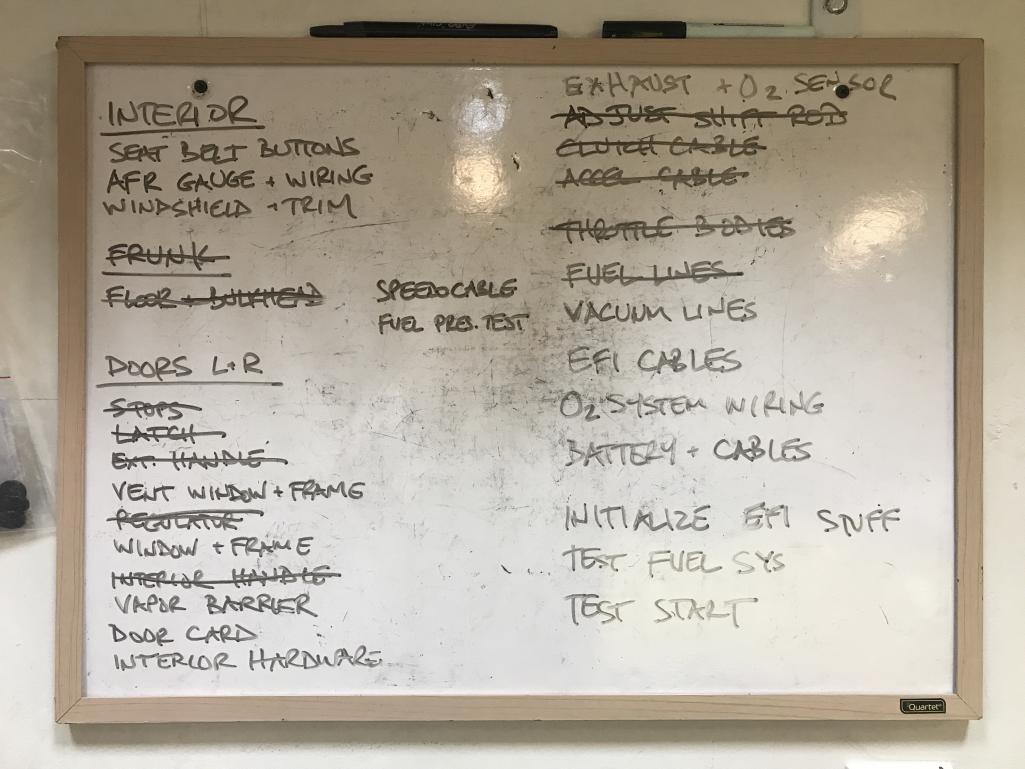 INTERIOR
SEAT BELT BUTTONS
AFR GAUGE + WIRING
WINDSHIELD + TRIM
FRUNK
FLOOR + BULKHEAD
SPEEDO CABLE
FUEL PRES. TEST
DOORS L+R
STOPS
LATCH
EXT. HANDLE
VENT WINDOW + FRAME
REGULATOR
WINDOW + FRAME
INTERIOR HANDLE
VAPOR BARRIER
DOOR CARD
INTERIOR HARDWARE
EXHAUST + O2 SENSOR
ADJUST SHIFT ROD
CLUTCH CABLE
ACCEL CABLE
THROTTLE BODIES
FUEL LINES
VACUUM LINES
EFI CABLES
O2 SYSTEM WIRING
BATTERY + CABLES
INITIALIZE EFI STUFF
TEST FUEL SYS
TEST START
Quartet